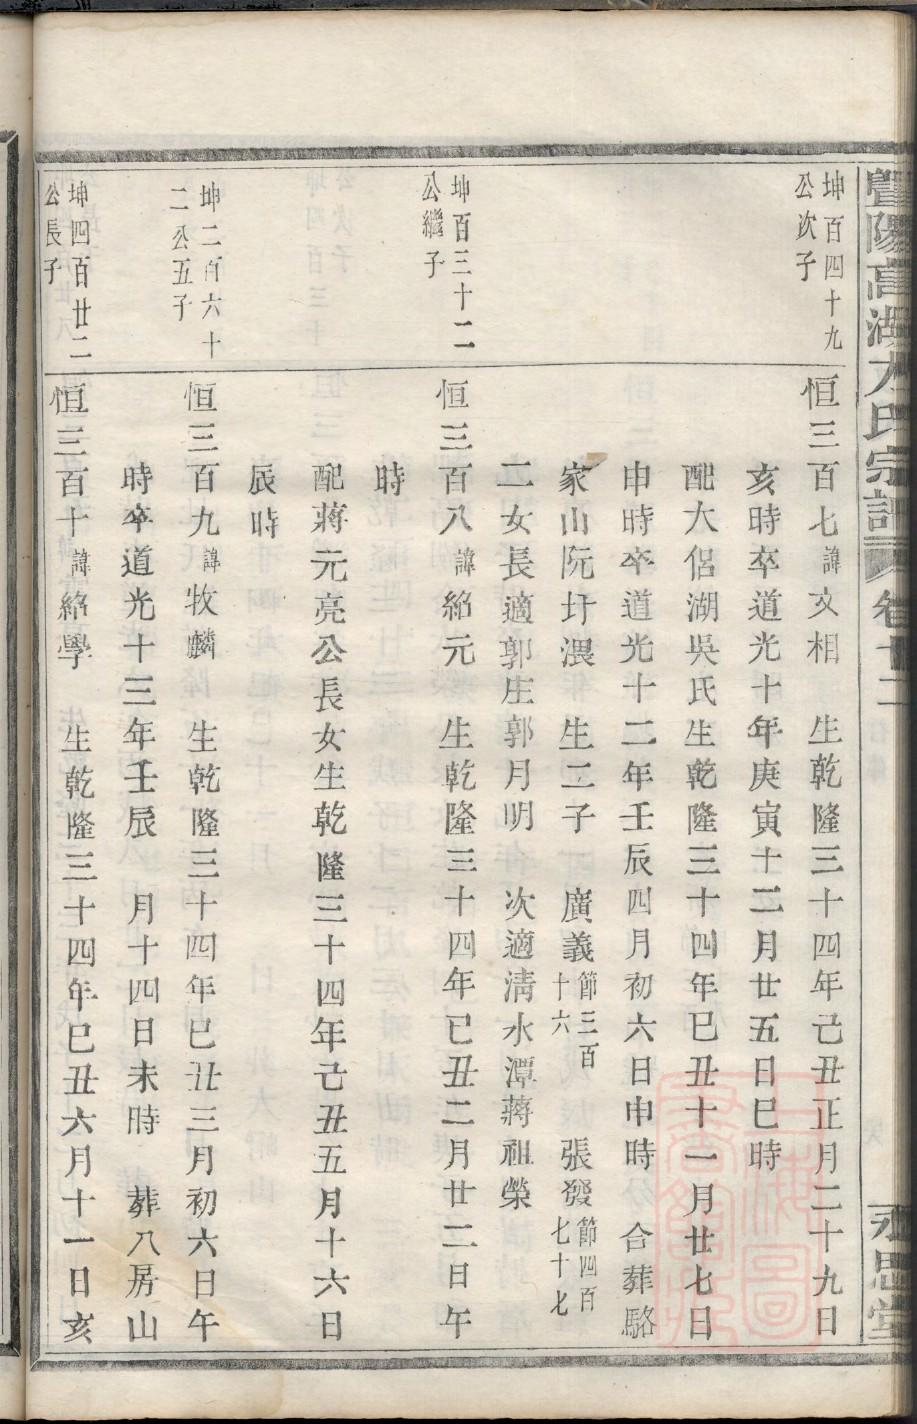 暨陽高湖方氏宗譜 卷十二 永思堂
坤百四十九
公次子
恒三百七諱文相 生乾隆三十四年己丑正月二十九日
亥時卒道光十年庚寅十二月廿五日巳時
配大侶湖吳氏生乾隆三十四年己丑十一月廿七日
申時卒道光十二年壬辰四月初六日申時 合葬駱
家山阮圩湋 生二子 廣義節三百十六 張發節四百七十七
二女長適郭庄郭月明 次適淸水潭蔣祖榮
坤百三十二
公繼子
恒三百八諱紹元 生乾隆三十四年己丑二月廿二日午
時
配蔣元亮公長女生乾隆三十四年己丑五月十六日
辰時
坤二百六十
二公五子
恒三百九諱牧麟 生乾隆三十四年己丑三月初六日午
時卒道光十三年壬辰 月十四日未時 葬八房山
坤四百廿二
公長子
恒三百十諱紹學 生乾隆三十四年己丑六月十一日亥